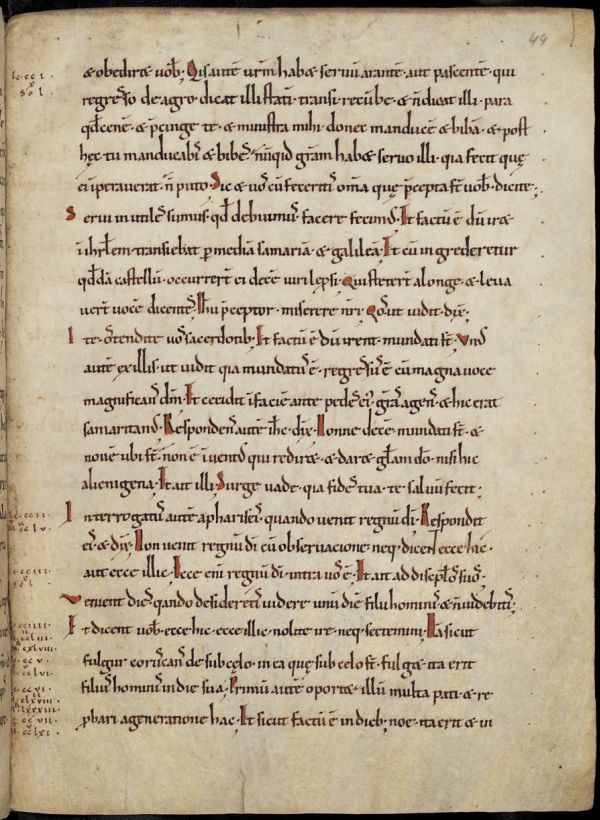 44
& obedir& uob'. Qis autē urm̄ hab& seruū arantē aut pascentē. qui
regresso de agro. dicat illi statī. transi. recūbe. & n̄ dicat illi. para
qd̄ cenē. & p̄cinge te. & ministra mihi donec manducē & bibā. & post
hęc tu manducabis & bibes. nūqid gr̄am hab& seruo illi. qia fecit quę
ei īperauerat. n̄ puto. Sic & uos cū feceritis om̄a quę p̄cepta st̄ uob'. dicite.
Serui inutiles sumus. qd̄ debuimus facere fecimus. Et factū ē dū ir&
ī ihrl̄em transiebat p mediā samariā & galileā. Et cū ingrederetur
qd̄dā castellū. occurrer̄t ei decē uiri lep̄si. Qui steter̄t a longe. & leua
uer̄t uocē dicentes. Ihu p̄ceptor. miserere nr̄i. Qos ut uidit dix̄.
Ite ostendite uos sacerdotib'. Et factū ē dū irent. mundati st̄. Unus
autē ex illis. ut uidit qia mundatus ē. regressus ē cū magna uoce
magnificans dm̄. Et cecidit ī faciē ante pedes ei'. gr̄as agens. & hic erat
samaritanus. Respondens autē ihc̄ dix̄. Nonne decē mundati st̄. &
nouē ubi st̄. non ē inuentus qui redir& & dar& gl̄am dō. nisi hic
alienigena. Et ait illi. Surge uade. qia fides tua te saluū fecit.
Interrogatus autē a phariseis. quando uenit regnū dī. Respondit
eis & dix̄. Non uenit regnū dī cū obseruacione. neq. dicent ecce hic.
aut ecce illic. Ecce enī regnū dī intra uos ē. Et ait ad discplos suos.
Uenient dies. qando desideretis uidere unū diē filii hominis & n̄ uidebitis.
Et dicent uob'. ecce hic. ecce illic. nolite ire. neq. sectemini. Nā sicut
fulgur coruscans de sub cęlo. in ea quę sub celo st̄. fulg&. ita erit
filius hominis in die sua. Primū autē oport& illū multa pati. & re
p̄bari a generatione hac. Et sicut factū ē in dieb' noe. ita erit & in